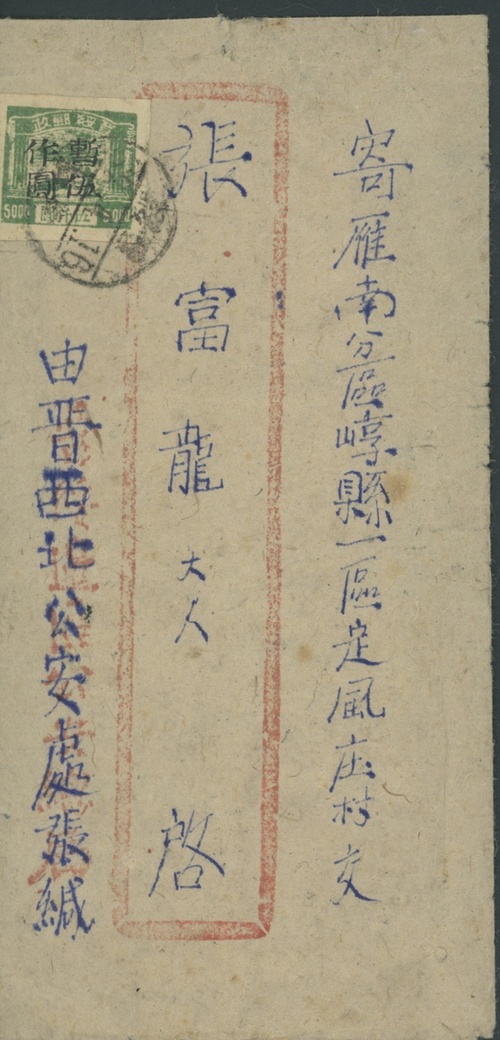 寄雁南分區崞縣一區定風庄村交
張富龍大人 啓
由晋西北公安處張緘
暫作
伍圓
5000